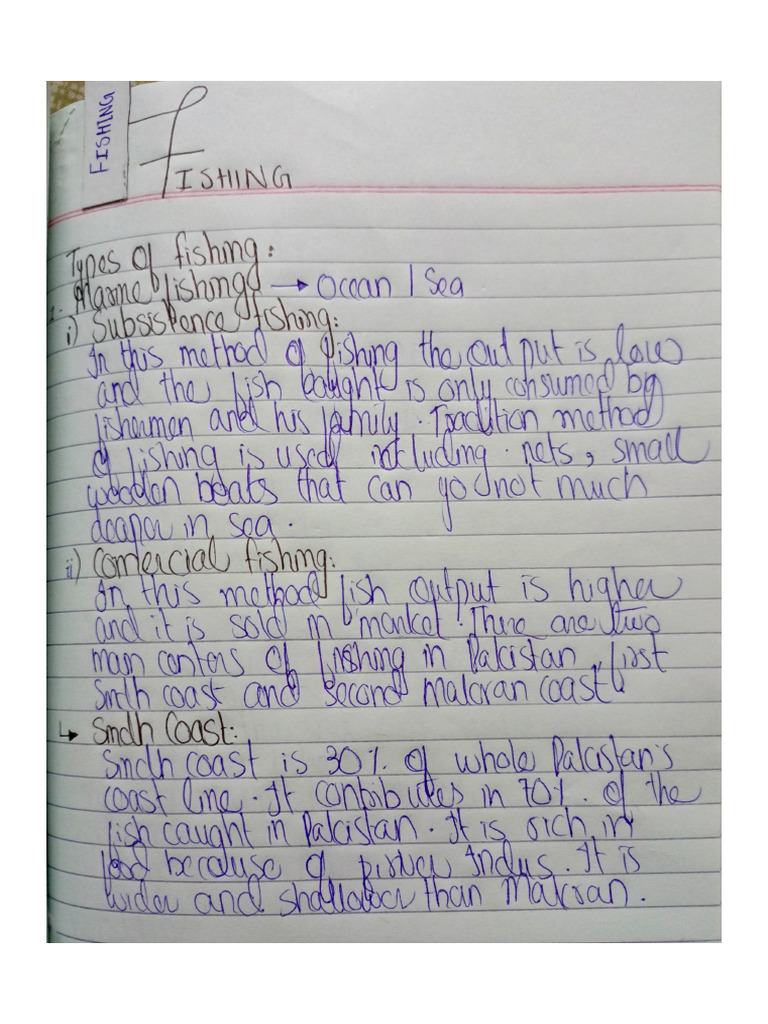 FISHING
FISHING
Types of fishing:
1. Marine fishing → Ocean / Sea
i) Subsistence fishing:
In this method of fishing the output is low
and the fish caught is only consumed by
fishermen and his family. Tradition method
of fishing is used including nets, small
wooden boats that can go not much
deaper in sea.
ii) Comercial fishing:
In this method fish output is higher
and it is sold in market. There are two
main centers of fishing in Pakistan, first
Sindh coast and second Makran coast.
↳ Sindh Coast:
Sindh coast is 30% of whole Pakistan's
coast line. It contributes in 70% of the
fish caught in Pakistan. It is rich in
food because of river Indus. It is
wider and shallower than Makran.